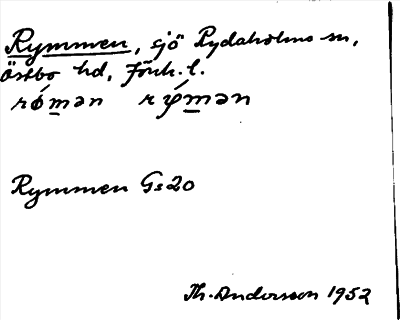 Rymmen, sjö Rydaholms sn,
Östbo hd, Jönk. l.
rǿmən rýmən
Rymmen Gs20
Th. Andersson 1952